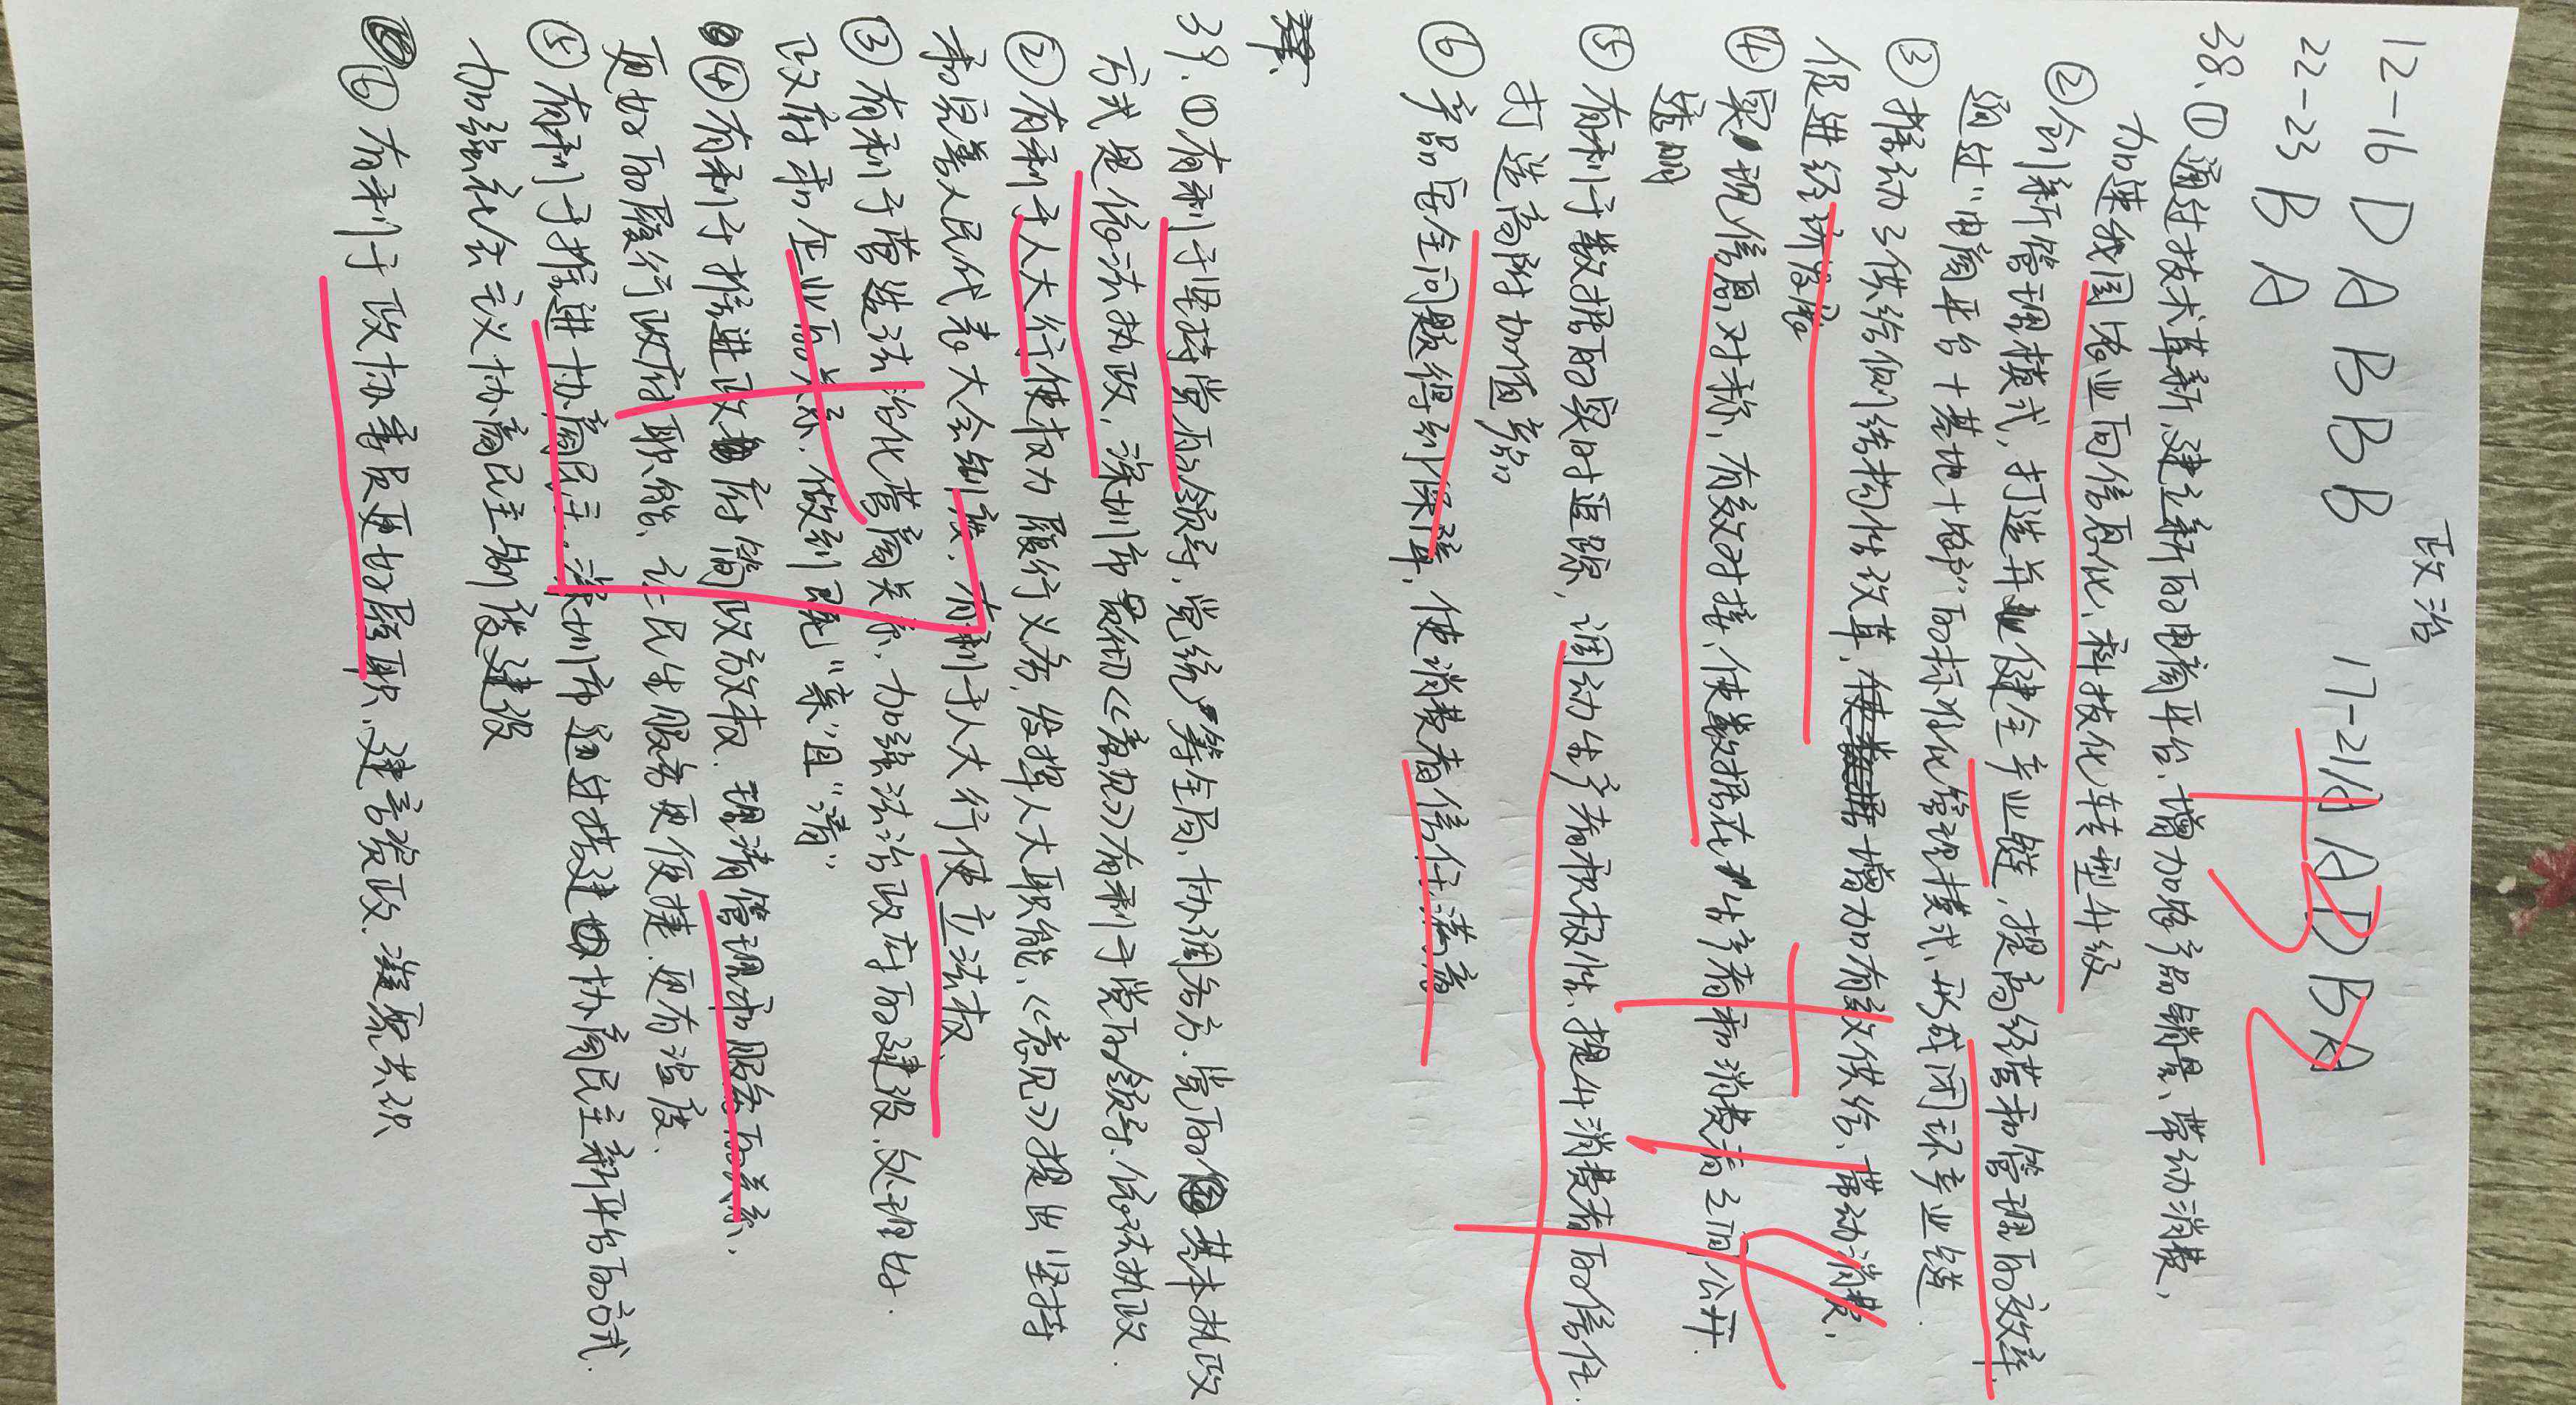 政治
12-16 D A B B B 17-21 A A D B A
22-23 B A
38.①通过技术革新,建立新的电商平台、增加农产品销量、带动消费,
加速我国农业向信息化、科技化转型升级
②创新管理模式,打造并健全产业链,提高经营和管理的效率.
通过“电商平台+基地+农户”的标准化管理模式、形成闭环产业链
③推动了供给侧结构性改革,增加有效供给、带动消费,
促进经济发展
④实现信息对称,有效对接、使数据在生产者和消费者之间公开.
透明
⑤有利于数据的实时追踪,调动生产者积极性、提升消费者的信任.
打造高附加值产品
⑥产品安全问题得到保障,使消费者信任、满意
39.①有利于坚持党的领导,党统筹全局、协调各方.党的基本执政
方式是依法执政,深圳市贯彻《意见》有利于党的领导、依法执政.
②有利于人大行使权力履行义务,发挥人大职能、《意见》提出坚持
和完善人民代表大会制度,有利于人大行使立法权.
③有利于营造法治化营商关系,加强法治政府的建设、处理好.
政府和企业的关系.做到既“亲”且“清”
④有利于推进政府简政放权.理清管理和服务的关系.
更好的履行政府职能、让民生服务更便捷.更有温度.
⑤有利于推进协商民主.深圳市通过搭建协商民主新平台的方式.
加强社会主义协商民主制度建设
⑥有利于政协委员更好履职、建言资政、凝聚共识